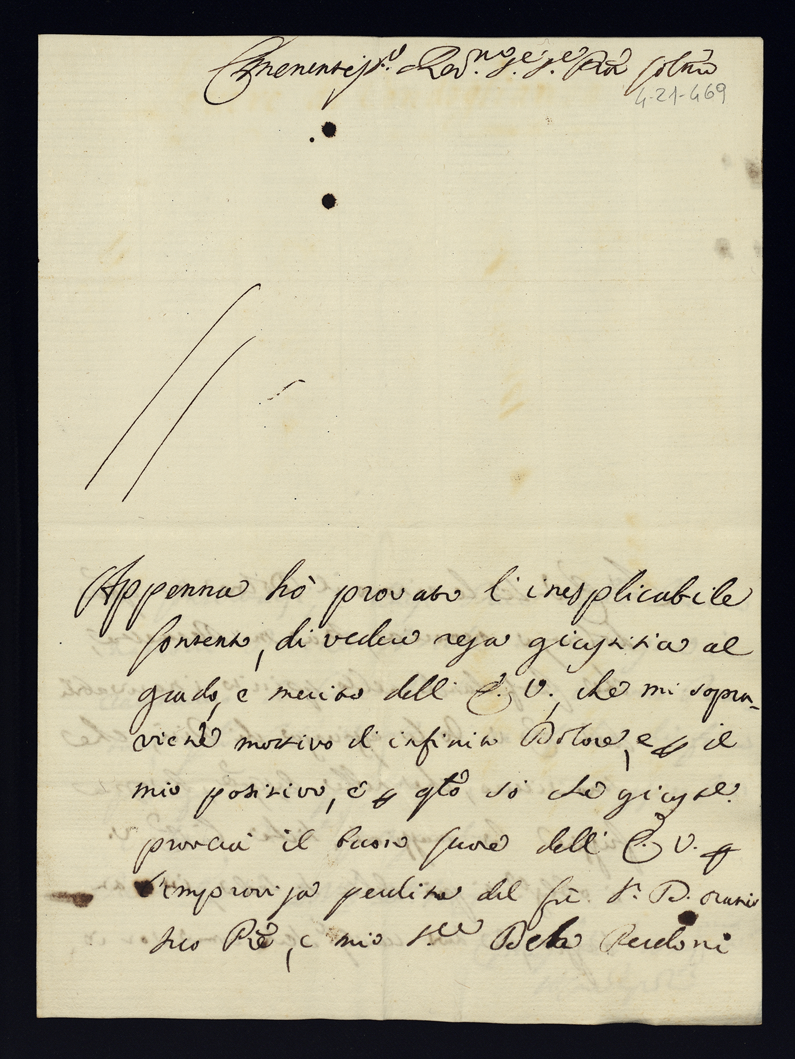 Eminentiss.o e Rev.mo S.e S.e Prõn Colmõ
4-21-469
Appenna hò provato l'inesplicabile
contento, di veder resa giustitia al
grado, e merito dell' E. V., che mi sopra-
viene mottivo d'infinito Dolore, e p il
mio positivo, e p qto so che giustte
provera il buon cuore dell' E. V. p
l'improvisa perdita del fù Sr. D. oratio
suo Pre, e mio Sre Della